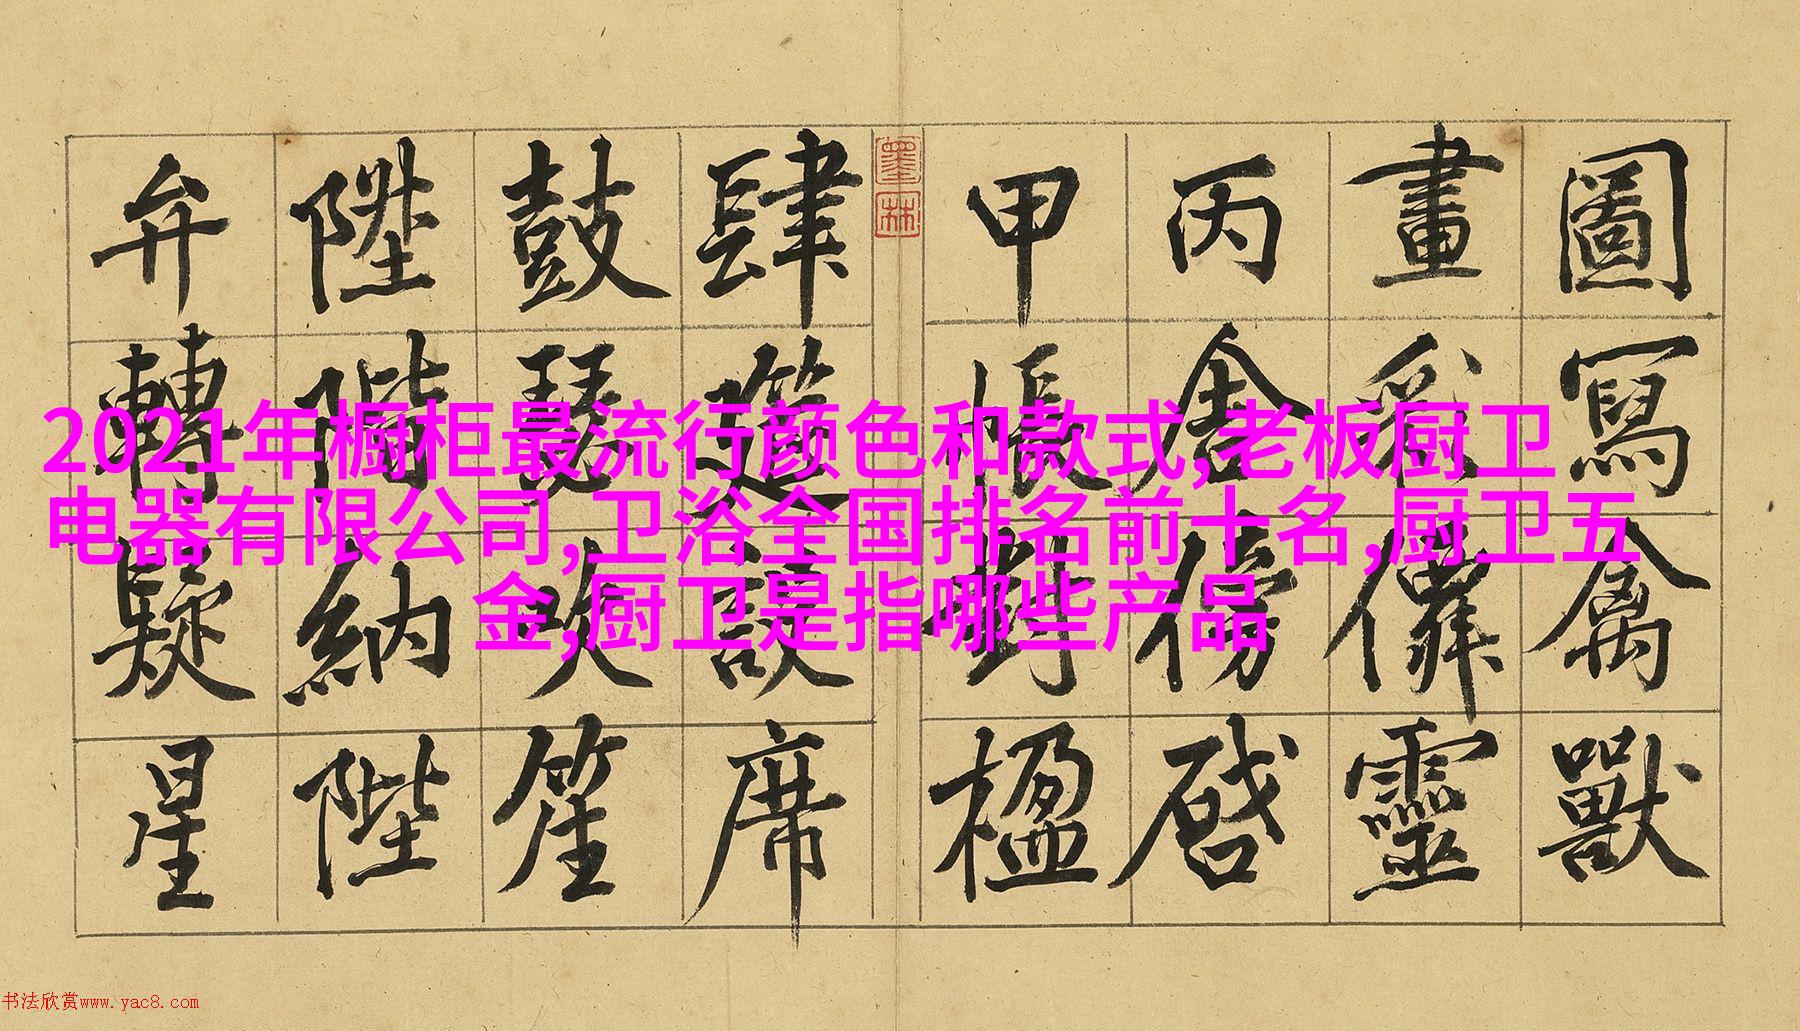 圖寫禽獸
畫采僊靈
丙舍傍啓
甲帳對楹
墨林
肆筵設席
鼓瑟吹笙
陞階納陛
弁轉疑星
2021年橱柜最流行颜色和款式,老板厨卫
电器有限公司,卫浴全国排名前十名,厨卫五
金,厨卫是指哪些产品
书法欣赏www.yac8.com